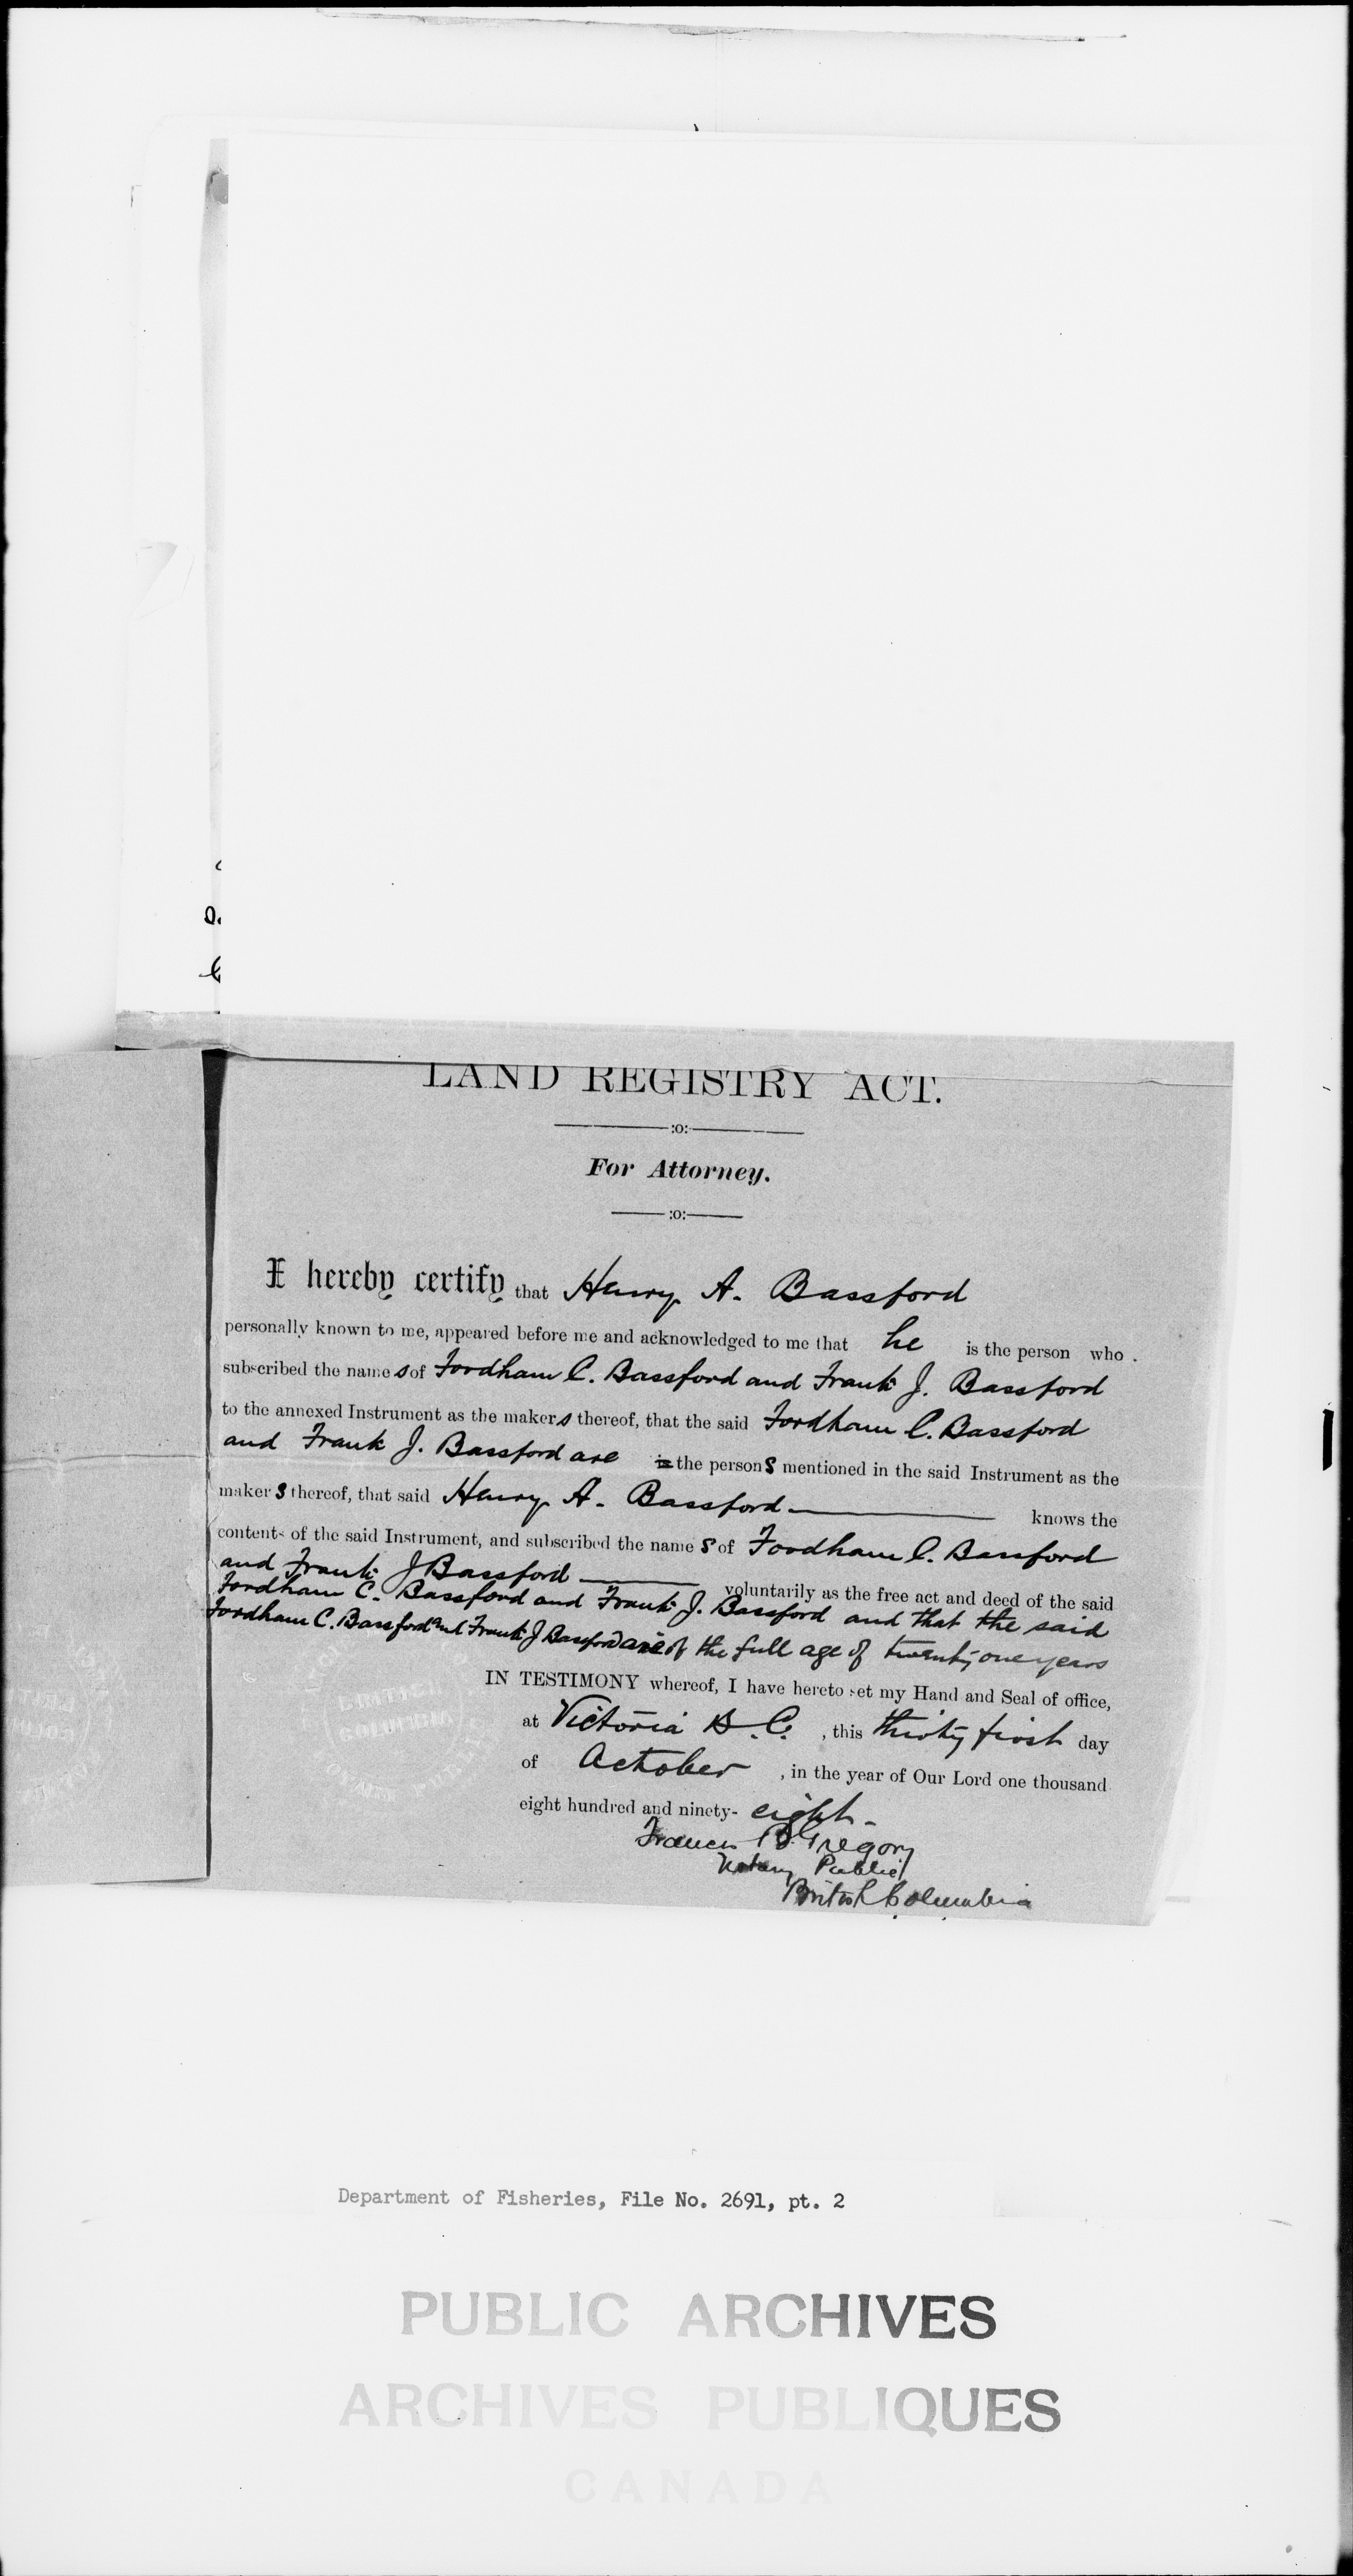 LAND REGISTRY ACT.
:o:
For Attorney.
:o:
I hereby certify that Henry A. Bassford
personally known to me, appeared before me and acknowledged to me that he is the person who
subscribed the names of Fordham C. Bassford and Frank J. Bassford
to the annexed Instrument as the makers thereof, that the said Fordham C. Bassford
and Frank J. Bassford are is the persons mentioned in the said Instrument as the
makers thereof, that said Henry A. Bassford knows the
contents of the said Instrument, and subscribed the names of Fordham C. Bassford
and Frank J Bassford voluntarily as the free act and deed of the said
Fordham C. Bassford and Frank J. Bassford and that the said
Fordham C. Bassford and Frank J Bassford are of the full age of twenty one years
IN TESTIMONY whereof, I have hereto set my Hand and Seal of office,
at Victoria B.C. , this thirty first day
of October , in the year of Our Lord one thousand
eight hundred and ninety- eight.
Francis B. Gregory
Notary Public
British Columbia
Department of Fisheries, File No. 2691, pt. 2
PUBLIC ARCHIVES
ARCHIVES PUBLIQUES
CANADA